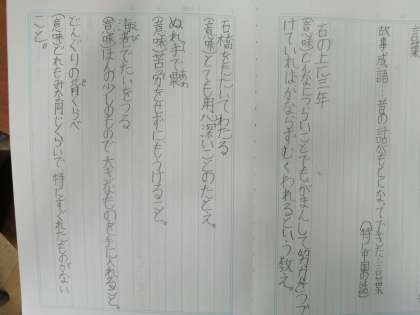 言葉
故事成語…昔の話がもとになってできた言葉
(特に中国の話)
石の上に三年
(意味)どんなにつらいことでもがまんして努力をつづ
けていればかならずむくわれるという教え。
石橋をたたいてわたる
(意味)とても用心深いことのたとえ。
ぬれ手で粟
(意味)苦労をせずにもうけること。
海老でたいをつる
(意味)ほんの少しのもので大きなものを手に入れること。
どんぐりの背くらべ
(意味)どれもみな同じくらいで特にすぐれたものがない
こと。